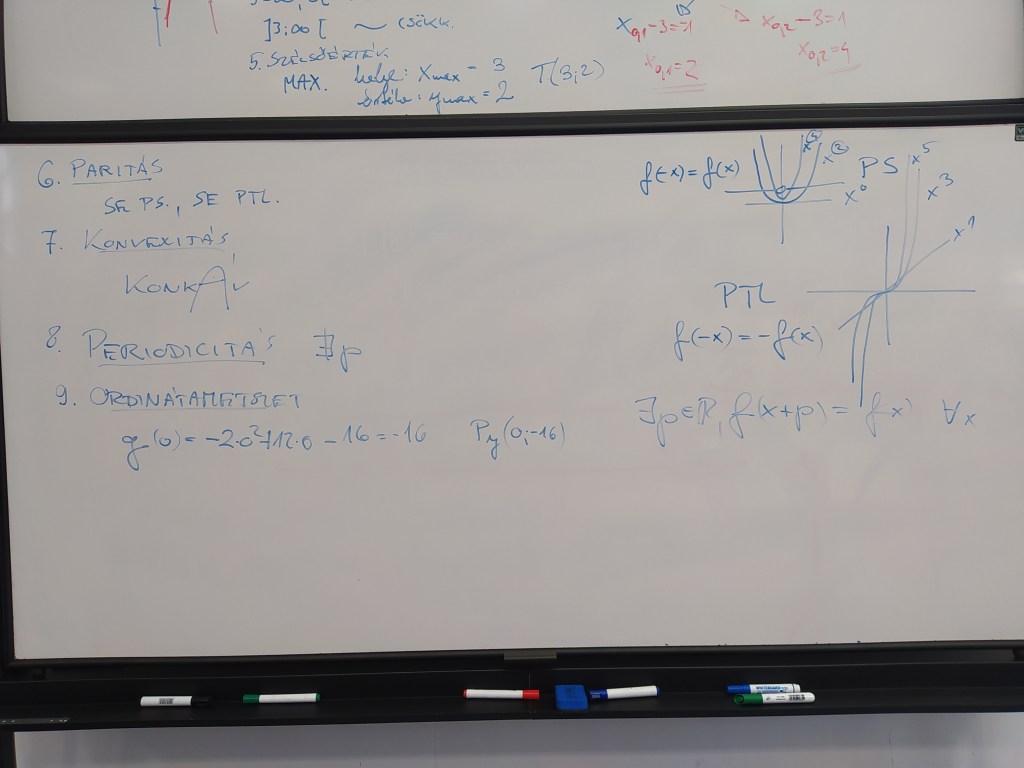 ]3;∞[ ~ CSÖKK.
5. SZÉLSŐÉRTÉK
MAX. helye: xmax = 3 T(3;2)
értéke: ymax = 2
x0,1-3=-1
x0,1=2
x0,2-3=1
x0,2=4
6. PARITÁS
SE PS., SE PTL.
7. KONVEXITÁS
KONKÁV
8. PERIODICITÁS ∄p
9. ORDINÁTAMETSZET
g(0)=-2·0²+12·0-16=-16 Py(0;-16)
f(-x)=f(x) x④ x② PS
x⁰
x⁵
x³
x¹
PTL
f(-x)=-f(x)
∃p∈ℝ, f(x+p)=f(x) ∀x